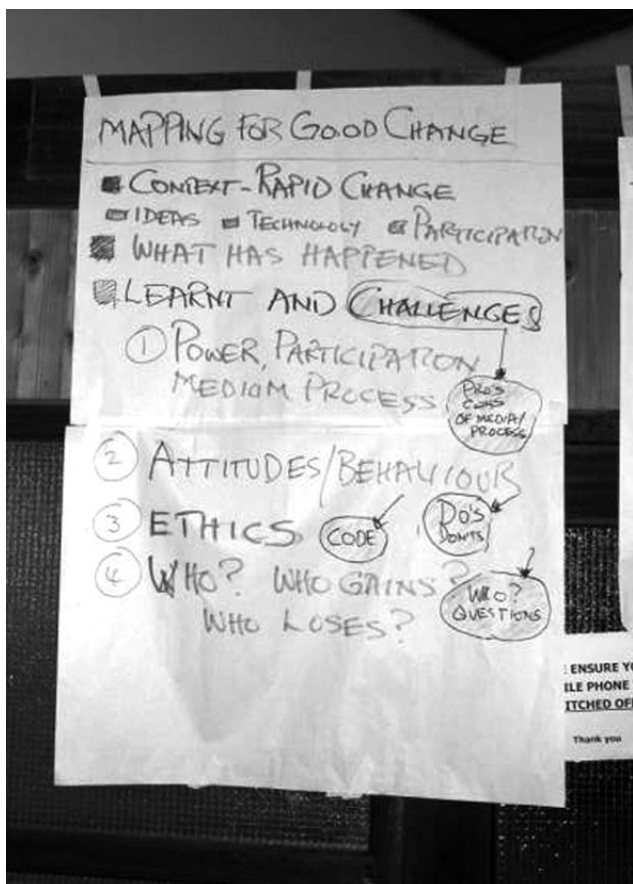 MAPPING FOR GOOD CHANGE
CONTEXT - RAPID CHANGE
IDEAS TECHNOLOGY PARTICIPATION
WHAT HAS HAPPENED
LEARNT AND CHALLENGES
1 POWER, PARTICIPATION
MEDIUM PROCESS
PRO'S
CONS
OF MEDIA/
PROCESS
2 ATTITUDES/BEHAVIOUR
3 ETHICS CODE
DO'S
DON'TS
4 WHO? WHO GAINS?
WHO LOSES?
WHO?
QUESTIONS
ENSURE YO
ILE PHONE
ITCHED OF
Thank you